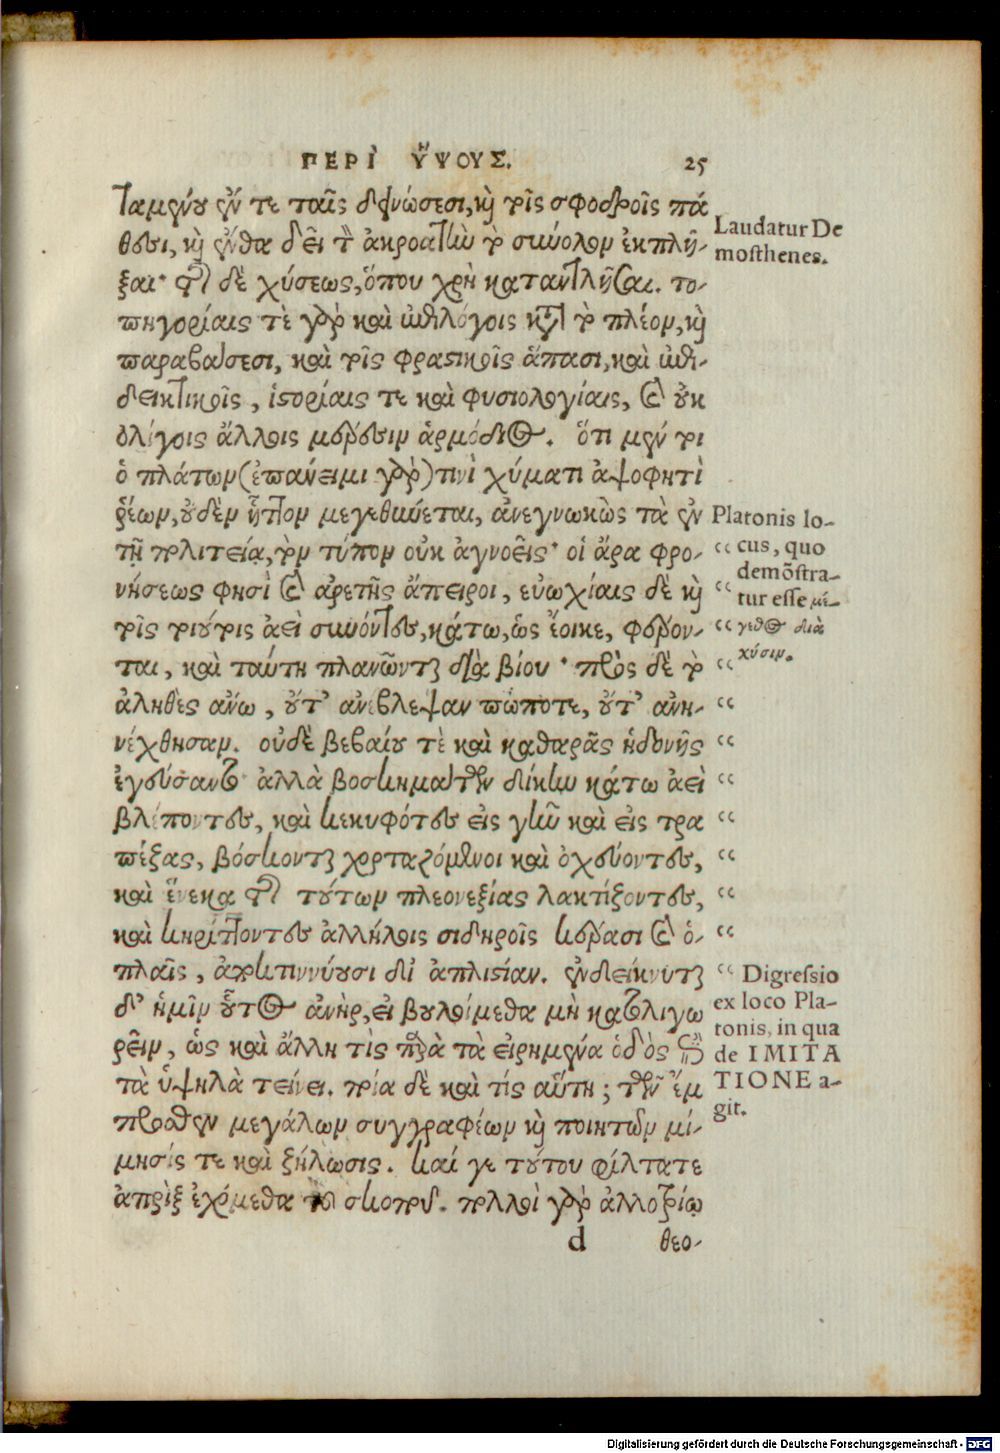 ΠΕΡῚ ὝΨΟΥΣ. 25
ταμένου ἔν τε ταῖς δεινώσεσι, καὶ τοῖς σφοδροῖς πά
θεσι, καὶ ἔνθα δεῖ τὸν ἀκροατὴν τὸ σύνολον ἐκπλῆ-
ξαι· τῆς δὲ χύσεως, ὅπου χρὴ καταντλῆσαι. το-
πηγορίαις τὲ γὰρ καὶ ἐπιλόγοις κατὰ τὸ πλέον, καὶ
παραβάσεσι, καὶ τοῖς φραστικοῖς ἅπασι, καὶ ἐπι-
δεικτικοῖς, ἱστορίαις τε καὶ φυσιολογίαις, καὶ οὐκ
ὀλίγοις ἄλλοις μέρεσιν ἁρμόδιος. ὅτι μέν τοι
ὁ πλάτων (ἐπάνειμι γὰρ) τινὶ χύματι ἀψοφητὶ
ῥέων, οὐδὲν ἧττον μεγεθύεται, ἀνεγνωκὼς τὰ ἐν
τῇ πολιτείᾳ, τὸν τύπον οὐκ ἀγνοεῖς· οἱ ἄρα φρο-
νήσεως φησὶ καὶ ἀρετῆς ἄπειροι, εὐωχίαις δὲ καὶ
τοῖς τοιούτοις ἀεὶ συνόντες, κάτω, ὡς ἔοικε, φέρον-
ται, καὶ ταύτῃ πλανῶνται διὰ βίου· πρὸς δὲ τὸ
ἀληθὲς ἄνω, οὔτ' ἀνέβλεψαν πώποτε, οὔτ' ἀνη-
νέχθησαν. οὐδὲ βεβαίου τὲ καὶ καθαρᾶς ἡδονῆς
ἐγεύσαντο· ἀλλὰ βοσκημάτων δίκην κάτω ἀεὶ
βλέποντες, καὶ κεκυφότες εἰς γῆν καὶ εἰς τρα
πέζας, βόσκονται χορταζόμενοι καὶ ὀχεύοντες,
καὶ ἕνεκα τῆς τούτων πλεονεξίας λακτίζοντες,
καὶ κηρίττοντες ἀλλήλοις σιδηροῖς κέρασι καὶ ὁ-
πλαῖς, ἀποκτιννύουσι δι' ἀπληστίαν. ἐνδείκνυται
δ' ἡμῖν οὗτος ἀνὴρ, εἰ βουλοίμεθα μὴ κατολιγω
ρεῖν, ὡς καὶ ἄλλη τὶς παρὰ τὰ εἰρημένα ὁδὸς ἐπὶ
τὰ ὑψηλὰ τείνει. ποία δὲ καὶ τίς αὕτη; τῶν ἔμ
προσθεν μεγάλων συγγραφέων καὶ ποιητῶν μί-
μησίς τε καὶ ζήλωσις. καί γε τούτου φίλτατε
ἀπρὶξ ἐχόμεθα τοῦ σκοποῦ. πολλοὶ γὰρ ἀλλοτρίῳ
d θεο-
Laudatur De
mosthenes.
Platonis lo-
cus, quo
demõstra-
tur esse μέ-
γεθος διὰ
χύσιν.
Digressio
ex loco Pla-
tonis, in qua
de IMITA
TIONE a-
git.
Digitalisierung gefördert durch die Deutsche Forschungsgemeinschaft - DFG